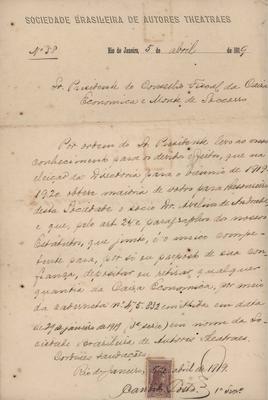 SOCIEDADE BRASILEIRA DE AUTORES THEATRAES
Nº 38 Rio de Janeiro, 5 de abril de 1919
Sr. Presidente do Conselho Fiscal da Caixa
Economica e Monte de Soccorro
Por ordem do Sr. Presidente levo ao vosso
conhecimento para os devidos effeitos, que na
eleição da Directoria para o biennio de 1919-
1920 obteve maioria de votos para thesoureiro
desta Sociedade o socio Sr. Avelino de Andrade,
e que, pelo art. 24 e paragraphos do nossos
Estatutos, que junto, é o unico compe-
tente para, por si ou preposto de sua con-
fiança, depositar ou retirar qualquer
quantia da Caixa Economica, por meio
da caderneta nº 475.832 emittida em data
de 29 de janeiro de 1919, (3ª serie) em nome da So-
ciedade Brasileira de Autores Theatraes.
Cordeaes saudações.
Rio de Janeiro, 5 de abril de 1919.
Costa 1º Secr.